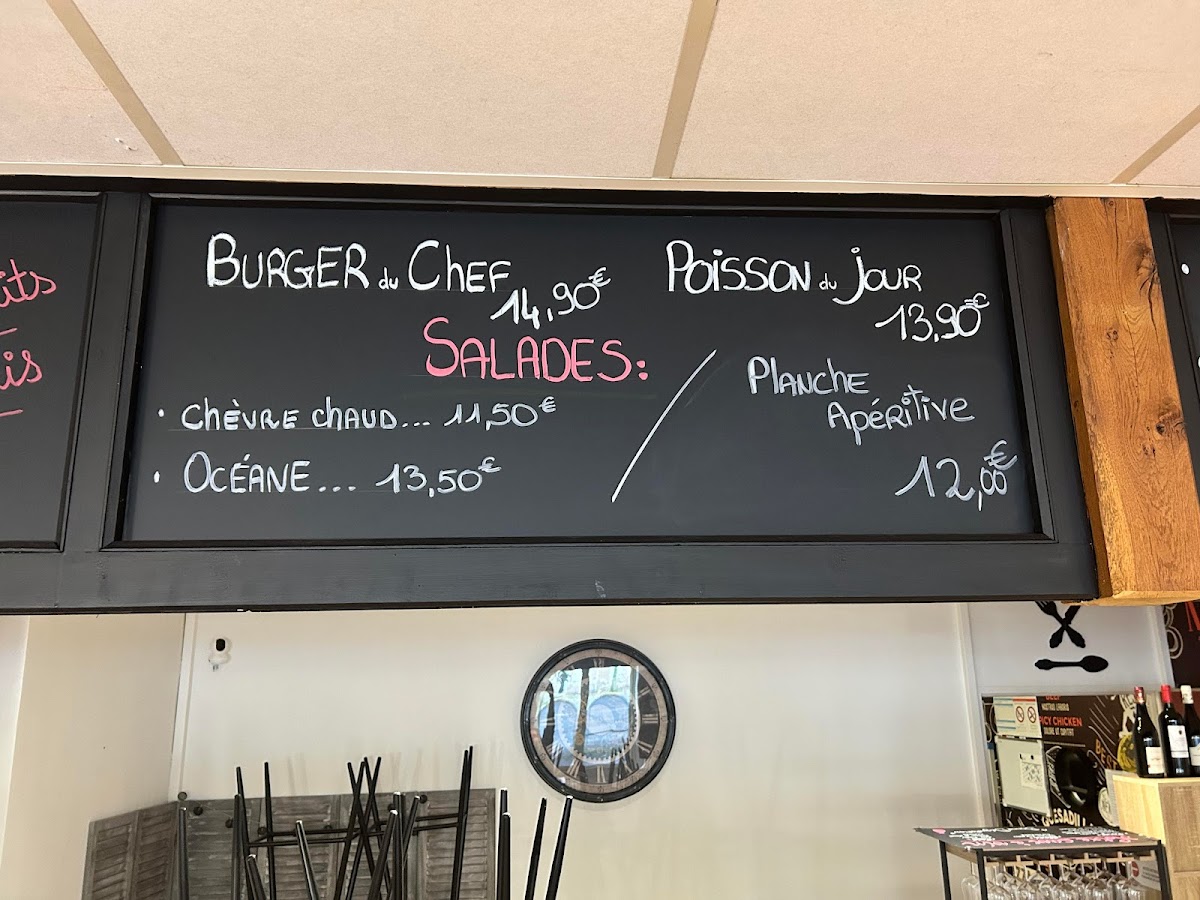 BURGER du CHEF
14,90€
POISSON du JOUR
13,90€
SALADES:
• CHÈVRE CHAUD... 11,50€
• OCÉANE... 13,50€
PLANCHE
APÉRITIVE
12,00€
CHICKEN